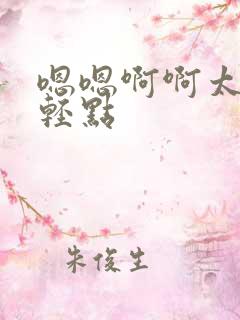 嗯嗯啊啊太
輕點
朱俊生